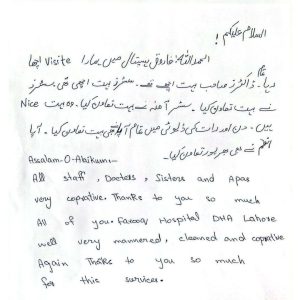 السلام علیکم !
الحمد اللہ فاروق ہسپتال میں ہمارا Visite اچھا
رہا۔ ڈاکٹرز صاحب بہت اچھے تھے۔ سسٹرز بہت اچھی تھی سسٹرز
نے بہت تعاون کیا۔ سسٹر آمنہ نے بہت تعاون کیا۔ وہ بہت Nice
ہیں۔ دن اور رات کی ڈیوٹی میں تمام آپا بھی بہت تعاون کیا۔ آپا
نے بھی بھر اور تعاون کیا۔
Assalam-O-Alaikum:-
All staff, Doctors, Sisters and Apas
very coprative. Thanks to you so much
All of you. Farooq Hospital DHA Lahore
well very mannered, cleaned and coprative
Again Thanks to you so much
for this survices.